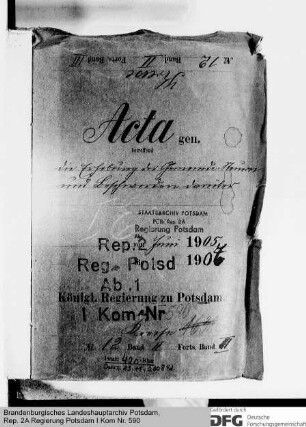 Nº 12 Band II Forts. Band III
Acta gen.
betreffend
die Erhebung der Gemeinde Steuern
und Beschwerden darüber
STAATSARCHIV POTSDAM
Regierung Potsdam
Rep. 2 Juni 1905
Reg. Potsd 1906
Ab. 1
Königl. Regierung zu Potsdam.
I Kom Nr
Nº 12 Band II Forts. Band III
Brandenburgisches Landeshauptarchiv Potsdam,
Rep. 2A Regierung Potsdam I Kom Nr. 590
Gefördert durch
DFG Deutsche
Forschungsgemeinschaft